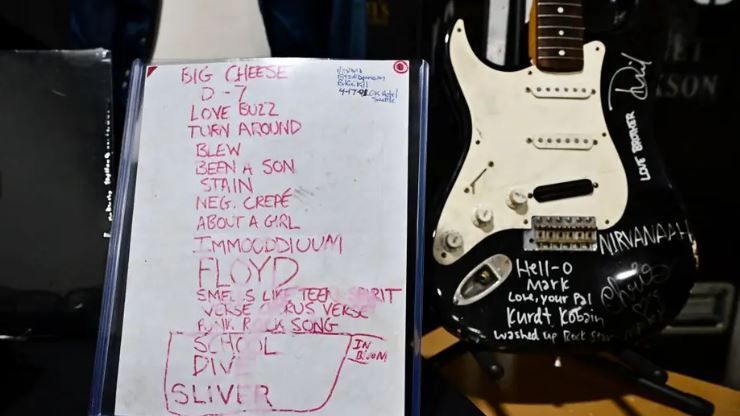 BIG CHEESE
D-7
LOVE BUZZ
TURN AROUND
BLEW
BEEN A SON
STAIN
NEG. CREPÉ
ABOUT A GIRL
IMMOODDIUUM
FLOYD
SMELLS LIKE TEEN SPIRIT
VERSE CHORUS VERSE
PUNK ROCK SONG
SCHOOL
DIVE
SLIVER
IN
4-17-91 OK Hotel
Seattle
SON
LOVE
NIRVANAAH
Hell-O
Mark
Love, your Pal
Kurdt Kobain
washed up Rock Star